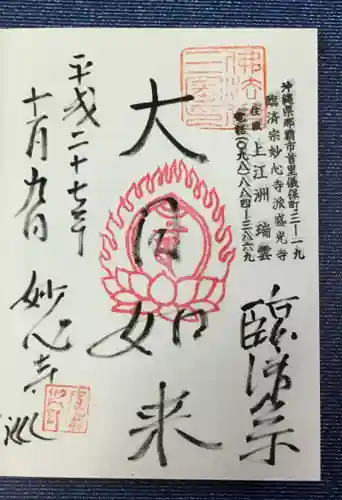 沖縄県那覇市首里儀保町三ー一九
臨済宗妙心寺派盛光寺
住職 上江洲 瑞雲
電話(〇九八)八八四ー三八六九
臨済宗
大日如来
平成二十七年
十一月九日 妙心寺 巡